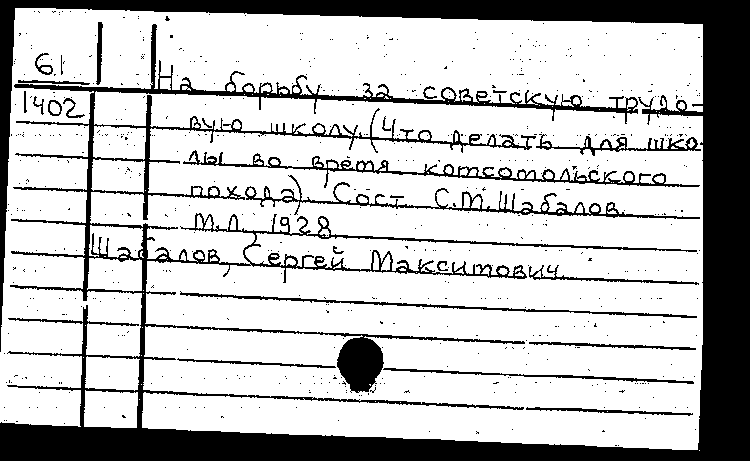 61
1402
На борьбу за советскую трудо-
вую школу. (Что делать для шко-
лы во время комсомольского
похода). Сост. С.М.Шабалов.
М.Л., 1928.
Шабалов, Сергей Максимович.